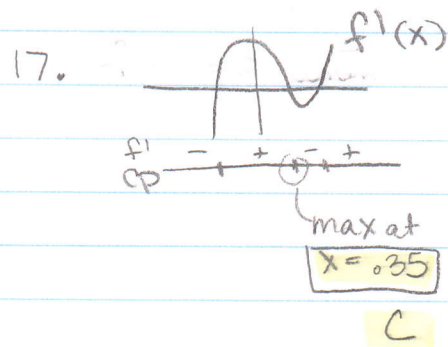 17.
f'(x)
f' - + - +
cp
max at
x = .35
C